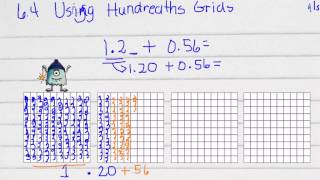 6.4 Using Hundredths Grids
1.2_ + 0.56=
1.20 + 0.56=
1 . 20 + 56